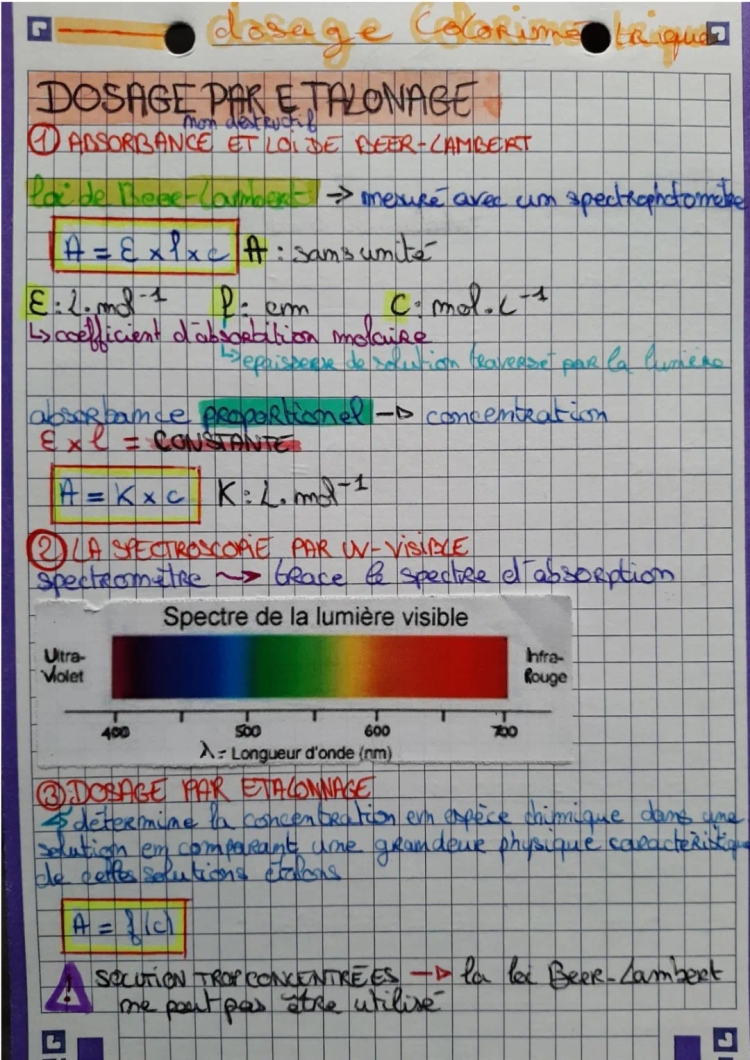 dosage Colorimétrique
DOSAGE PAR ETALONAGE
non destructif
① ABSORBANCE ET LOI DE BEER-LAMBERT
loi de Beer-Lambert → mesuré avec un spectrophotomètre
A = Ɛ x l x c A : sans unité
Ɛ : L.mol⁻¹ l : cm C : mol.L⁻¹
↳ coefficient d'absorbtition molaire
↳ epaisseur de solution traversé par la lumière
absorbance proportionel → concentration
Ɛ x l = CONSTANTE
A = K x c K : L.mol⁻¹
② LA SPECTROSCOPIE PAR UV-VISIBLE
spectromètre ⇝ trace le spectre d'absorption
Spectre de la lumière visible
Ultra-Violet
Infra-Rouge
400 500 600 700
λ = Longueur d'onde (nm)
③ DOSAGE PAR ETALONNAGE
détermine la concentration en espèce chimique dans une
solution en comparant une grandeur physique caractéristique
de cettes solutions étalons
A = f(c)
! SOLUTION TROP CONCENTRÉES → la loi Beer-Lambert
ne peut pas être utilisé